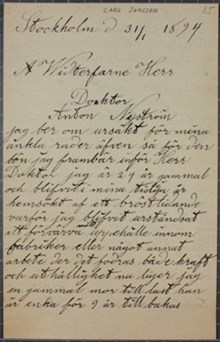 CARL JANSSON
15
Stockholm d 31/1 1894
Wälterfarne Herr
Doktor
Anton Nyström
jag ber om ursäkt för mina
enkla rader äfven så för den
bön jag frambär inför Herr
Doktor jag är 24 år gammal
och blifvit mina
hemsökt af ett bröstlidande
varför jag blifvit urståndsat
att förvärva uppehälle innom
fabriker eller något annat
arbete der det fodras både kraft
och uthållighet nu liger jag
en gammal mor till last hon
är enka för 9 år tillbaka